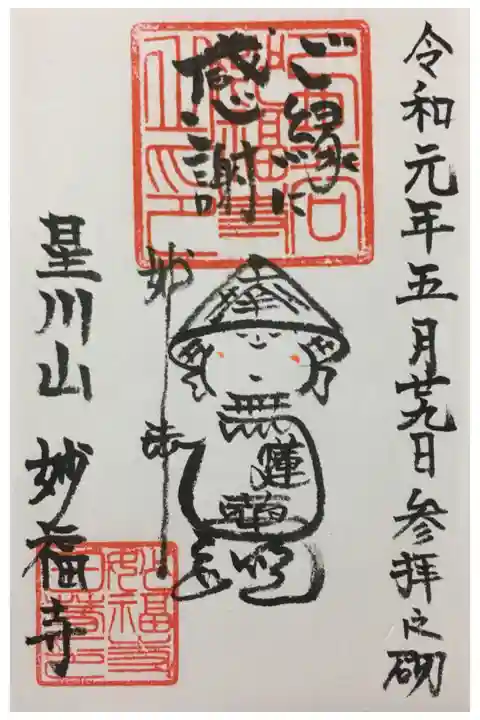 令和元年五月廿九日参拝之砌
ご縁に
感謝
無
妙法
蓮
華
星川山 妙福寺